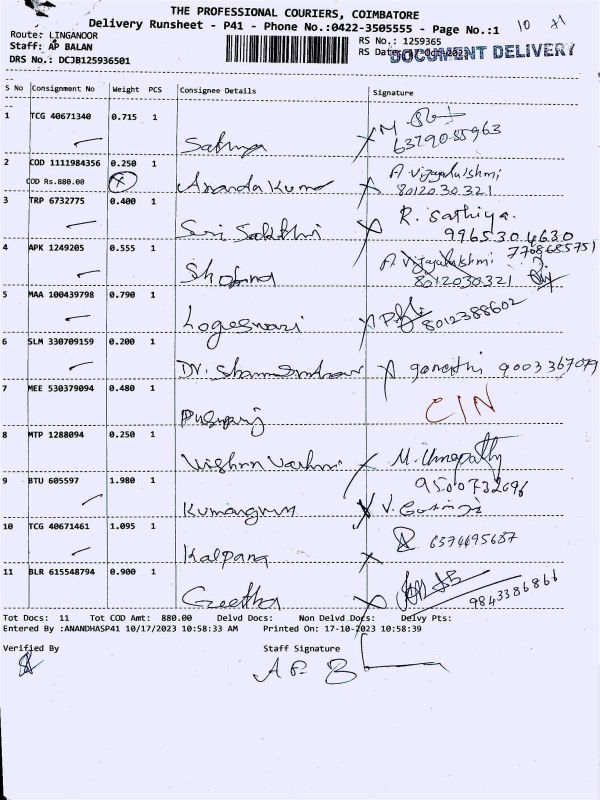 THE PROFESSIONAL COURIERS, COIMBATORE
Delivery Runsheet - P41 - Phone No.:0422-3505555 - Page No.:1
10 +1
Route: LINGANOOR
RS No.: 1259365
Staff: AP BALAN
RS Date: 17-Oct-2023
DOCUMENT DELIVERY
DRS No.: DCJB125936501
S No Consignment No Weight PCS Consignee Details Signature
1 TCG 40671340 0.715 1 Sathya M.
6379055963
2 COD 1111984356 0.250 1 Ananda Kumar A. Vijayalakshmi
COD Rs.880.00 8012030321
3 TRP 6732775 0.400 1 Sri Sakthi R. Sathiya.
9965304630
7708685751
4 APK 1249205 0.555 1 Shobana A. Vijayalakshmi
8012030321
5 MAA 100439798 0.790 1 Logeswari 8012388602
6 SLM 330709159 0.200 1 Dr. Shanmsundaar ganesh 9003367079
7 MEE 530379094 0.480 1 Pushparaj C/N
8 MTP 1288094 0.250 1 Vishnu Varhni M. Umapathy
9500732696
9 BTU 605597 1.980 1 Kumarguru V.
10 TCG 40671461 1.095 1 Kalpana 6374695687
11 BLR 615548794 0.900 1 Geetha 9843386866
Tot Docs: 11 Tot COD Amt: 880.00 Delvd Docs: Non Delvd Docs: Delvy Pts:
Entered By :ANANDHASP41 10/17/2023 10:58:33 AM Printed On: 17-10-2023 10:58:39
Verified By Staff Signature